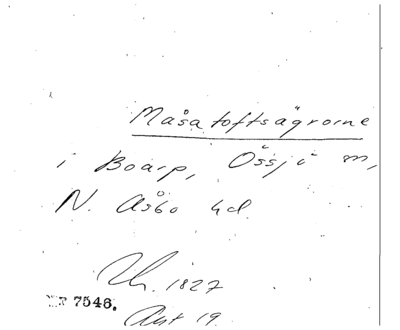 Måsatoftsägrorne
i Boarp, Össjö m,
N. Åsbo hd.
1827
NR 7546.
Akt 19.